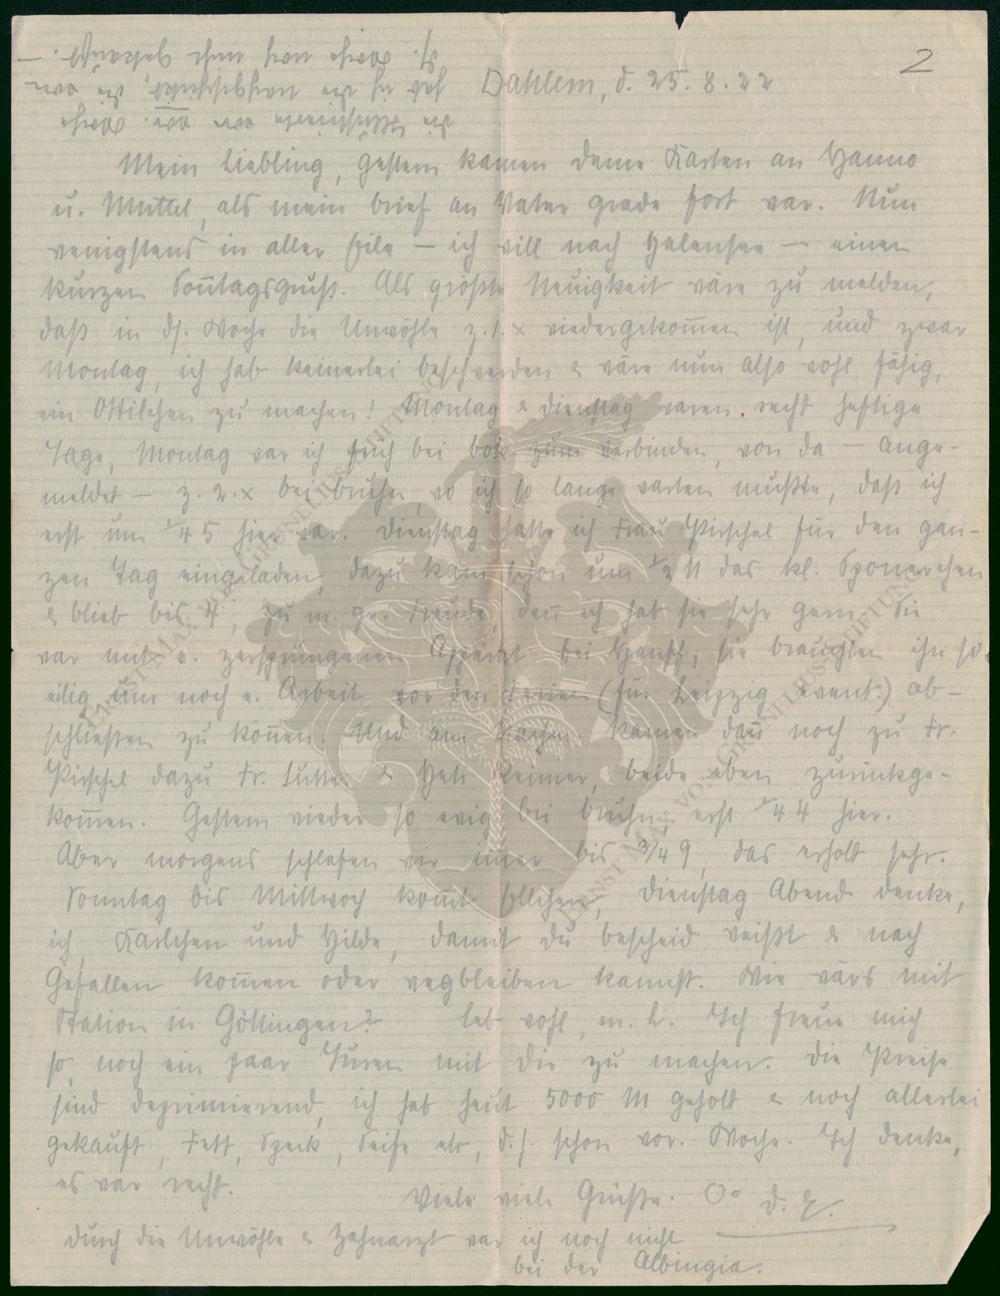 2
Dahlem, d. 25.8.22
Mein Liebling, gestern kamen deine Karten an Hanno
u. Muttel, als mein Brief an Vater grade fort war. Nun
wenigstens in aller Eile – ich will nach Halensee – einen
kurzen Son̄tagsgruß. Als größte Neuigkeit wäre zu melden,
daß in ds. Woche die Unwöhle z. 1. x wiedergekom̄en ist, und zwar
Montag, ich hab keinerlei Beschwerden & wäre nun also wohl fähig,
ein Ottilchen zu machen! Montag & Dienstag waren recht heftige
Tage, Montag war ich früh bei zum Verbinden, von da – ange-
meldet – z. 2. x bei Bruhn, wo ich so lange warten mußte, daß ich
erst um 1/4 5 hier war. Dienstag hatte ich Frau Pirschel für den gan-
zen Tag eingeladen, dazu kam schon um 1/2 11 das kl. Sponerchen
& blieb bis 4, zu m. gr. Freude, den̄ ich hab sie sehr gern. Sie
war mit e. zersprungenen Apparat bei Hanff, sie brauchten ihn so
eilig, um noch e. Arbeit vor den Ferien (für Leipzig event.) ab-
schließen zu kön̄en. Und am Nachm. kamen dan̄ noch zu Fr.
Pirschel dazu Fr. & Heti beide eben zurückge-
kom̄en. Gestern wieder so ewig bei Bruhn, erst 1/4 4 hier.
Aber morgens schlafen wir im̄er bis 3/4 9, das erholt sehr.
Sonntag bis Mittwoch kom̄t Ellchen, Dienstag Abend denke,
ich, Karlchen und Hilde, damit du Bescheid weißt & nach
Gefallen kom̄en oder wegbleiben kannst. Wie wärs mit
Station in Göttingen? Leb wohl, m. L. Ich freue mich
so, noch ein paar Turen mit Dir zu machen. Die Preise
sind deprimierend, ich hab heut 5000 M geholt & noch allerlei
gekauft, Fett, Speck, Seife etc, d. h. schon vor. Woche. Ich denke,
es war recht.
Viele viele Grüße. d. E.
Durch die Unwöhle & Zahnarzt war ich noch nicht
bei der Albingia.
ERNST MAX VON GIRNCELLIUS-STIFTUNG
ERNST MAX VON GIRNCELLIUS-STIFTUNG